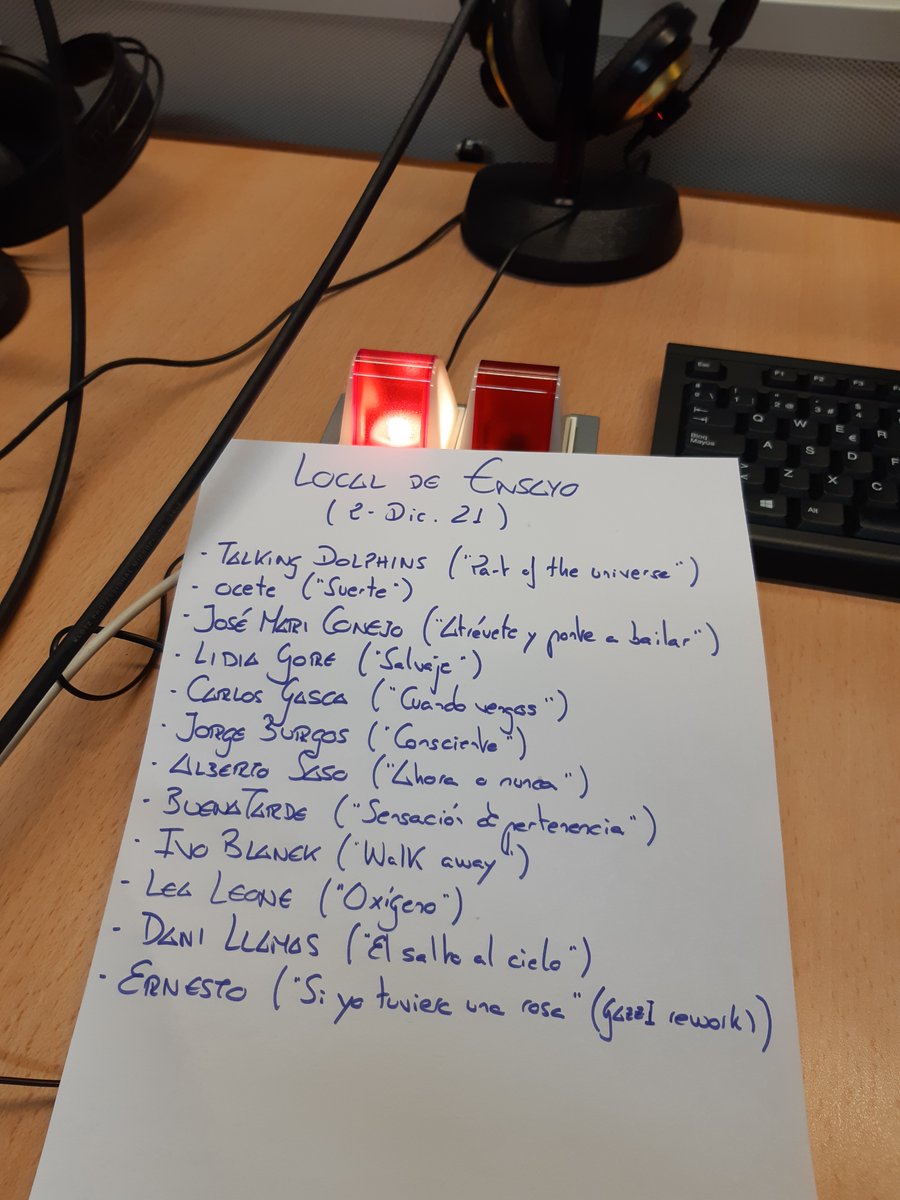 LOCAL DE ENSAYO
(2-Dic. 21)
- TALKING DOLPHINS ("Part of the universe")
- OCETE ("Suerte")
- JOSÉ MARI CONEJO ("Atrévete y ponte a bailar")
- LIDIA GORE ("Salvaje")
- CARLOS GASCA ("Cuando vengas")
- JORGE BURGOS ("Consciente")
- ALBERTO SASO ("Ahora o nunca")
- BUENATARDE ("Sensación de pertenencia")
- IVO BLANEK ("Walk away")
- LEA LEONE ("Oxígeno")
- DANI LLAMAS ("El salto al cielo")
- ERNESTO ("Si yo tuviera una rosa" (GAZZI rework))
Esc F1 F2 F3
Q W E R
Bloq Mayús A S D F
Z X C
Alt